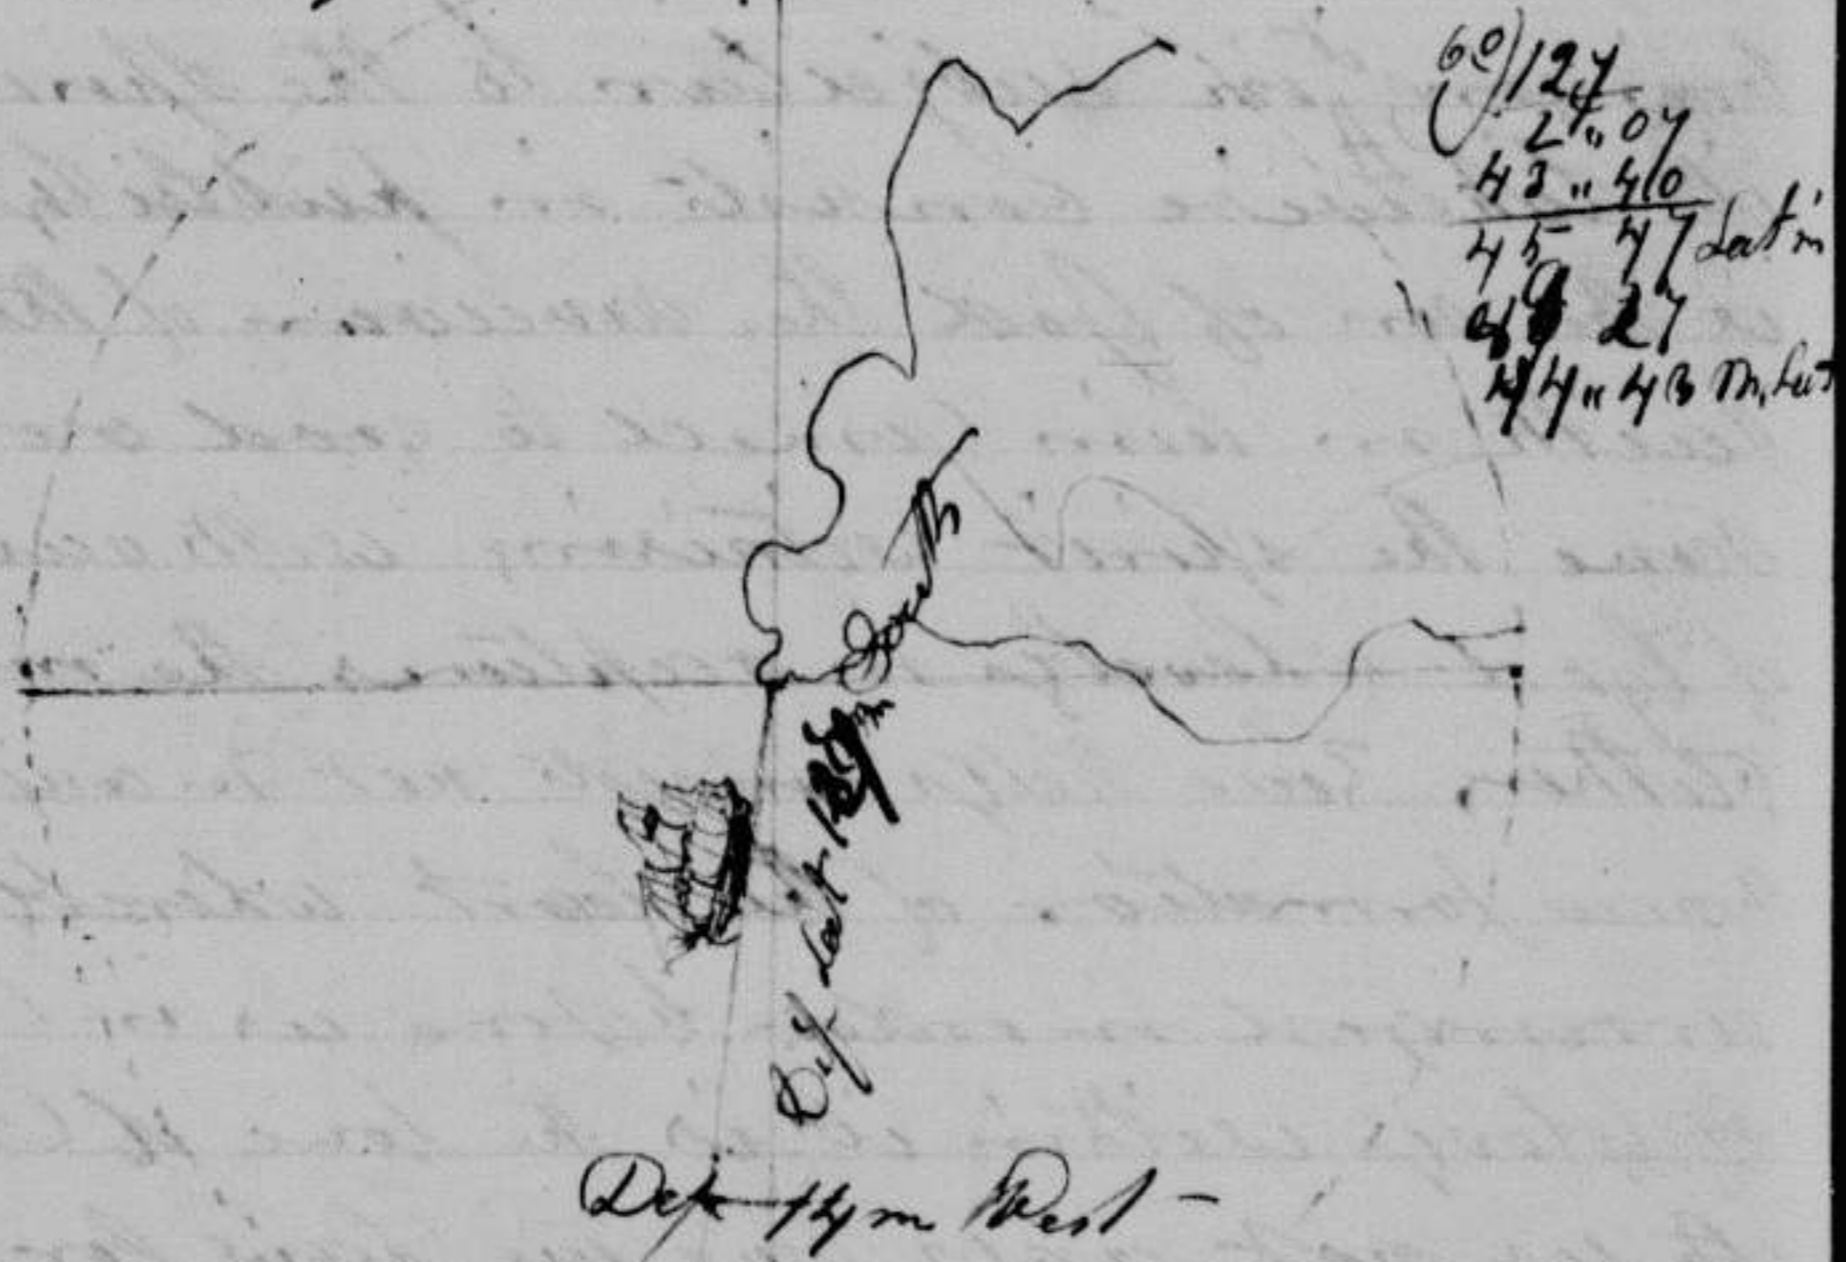 60)127
2 " 07
43 " 40
45 47 Lat in
89 27
44 " 43 M. Lat
Dif Lat 127 m South
Dep 17 m West –